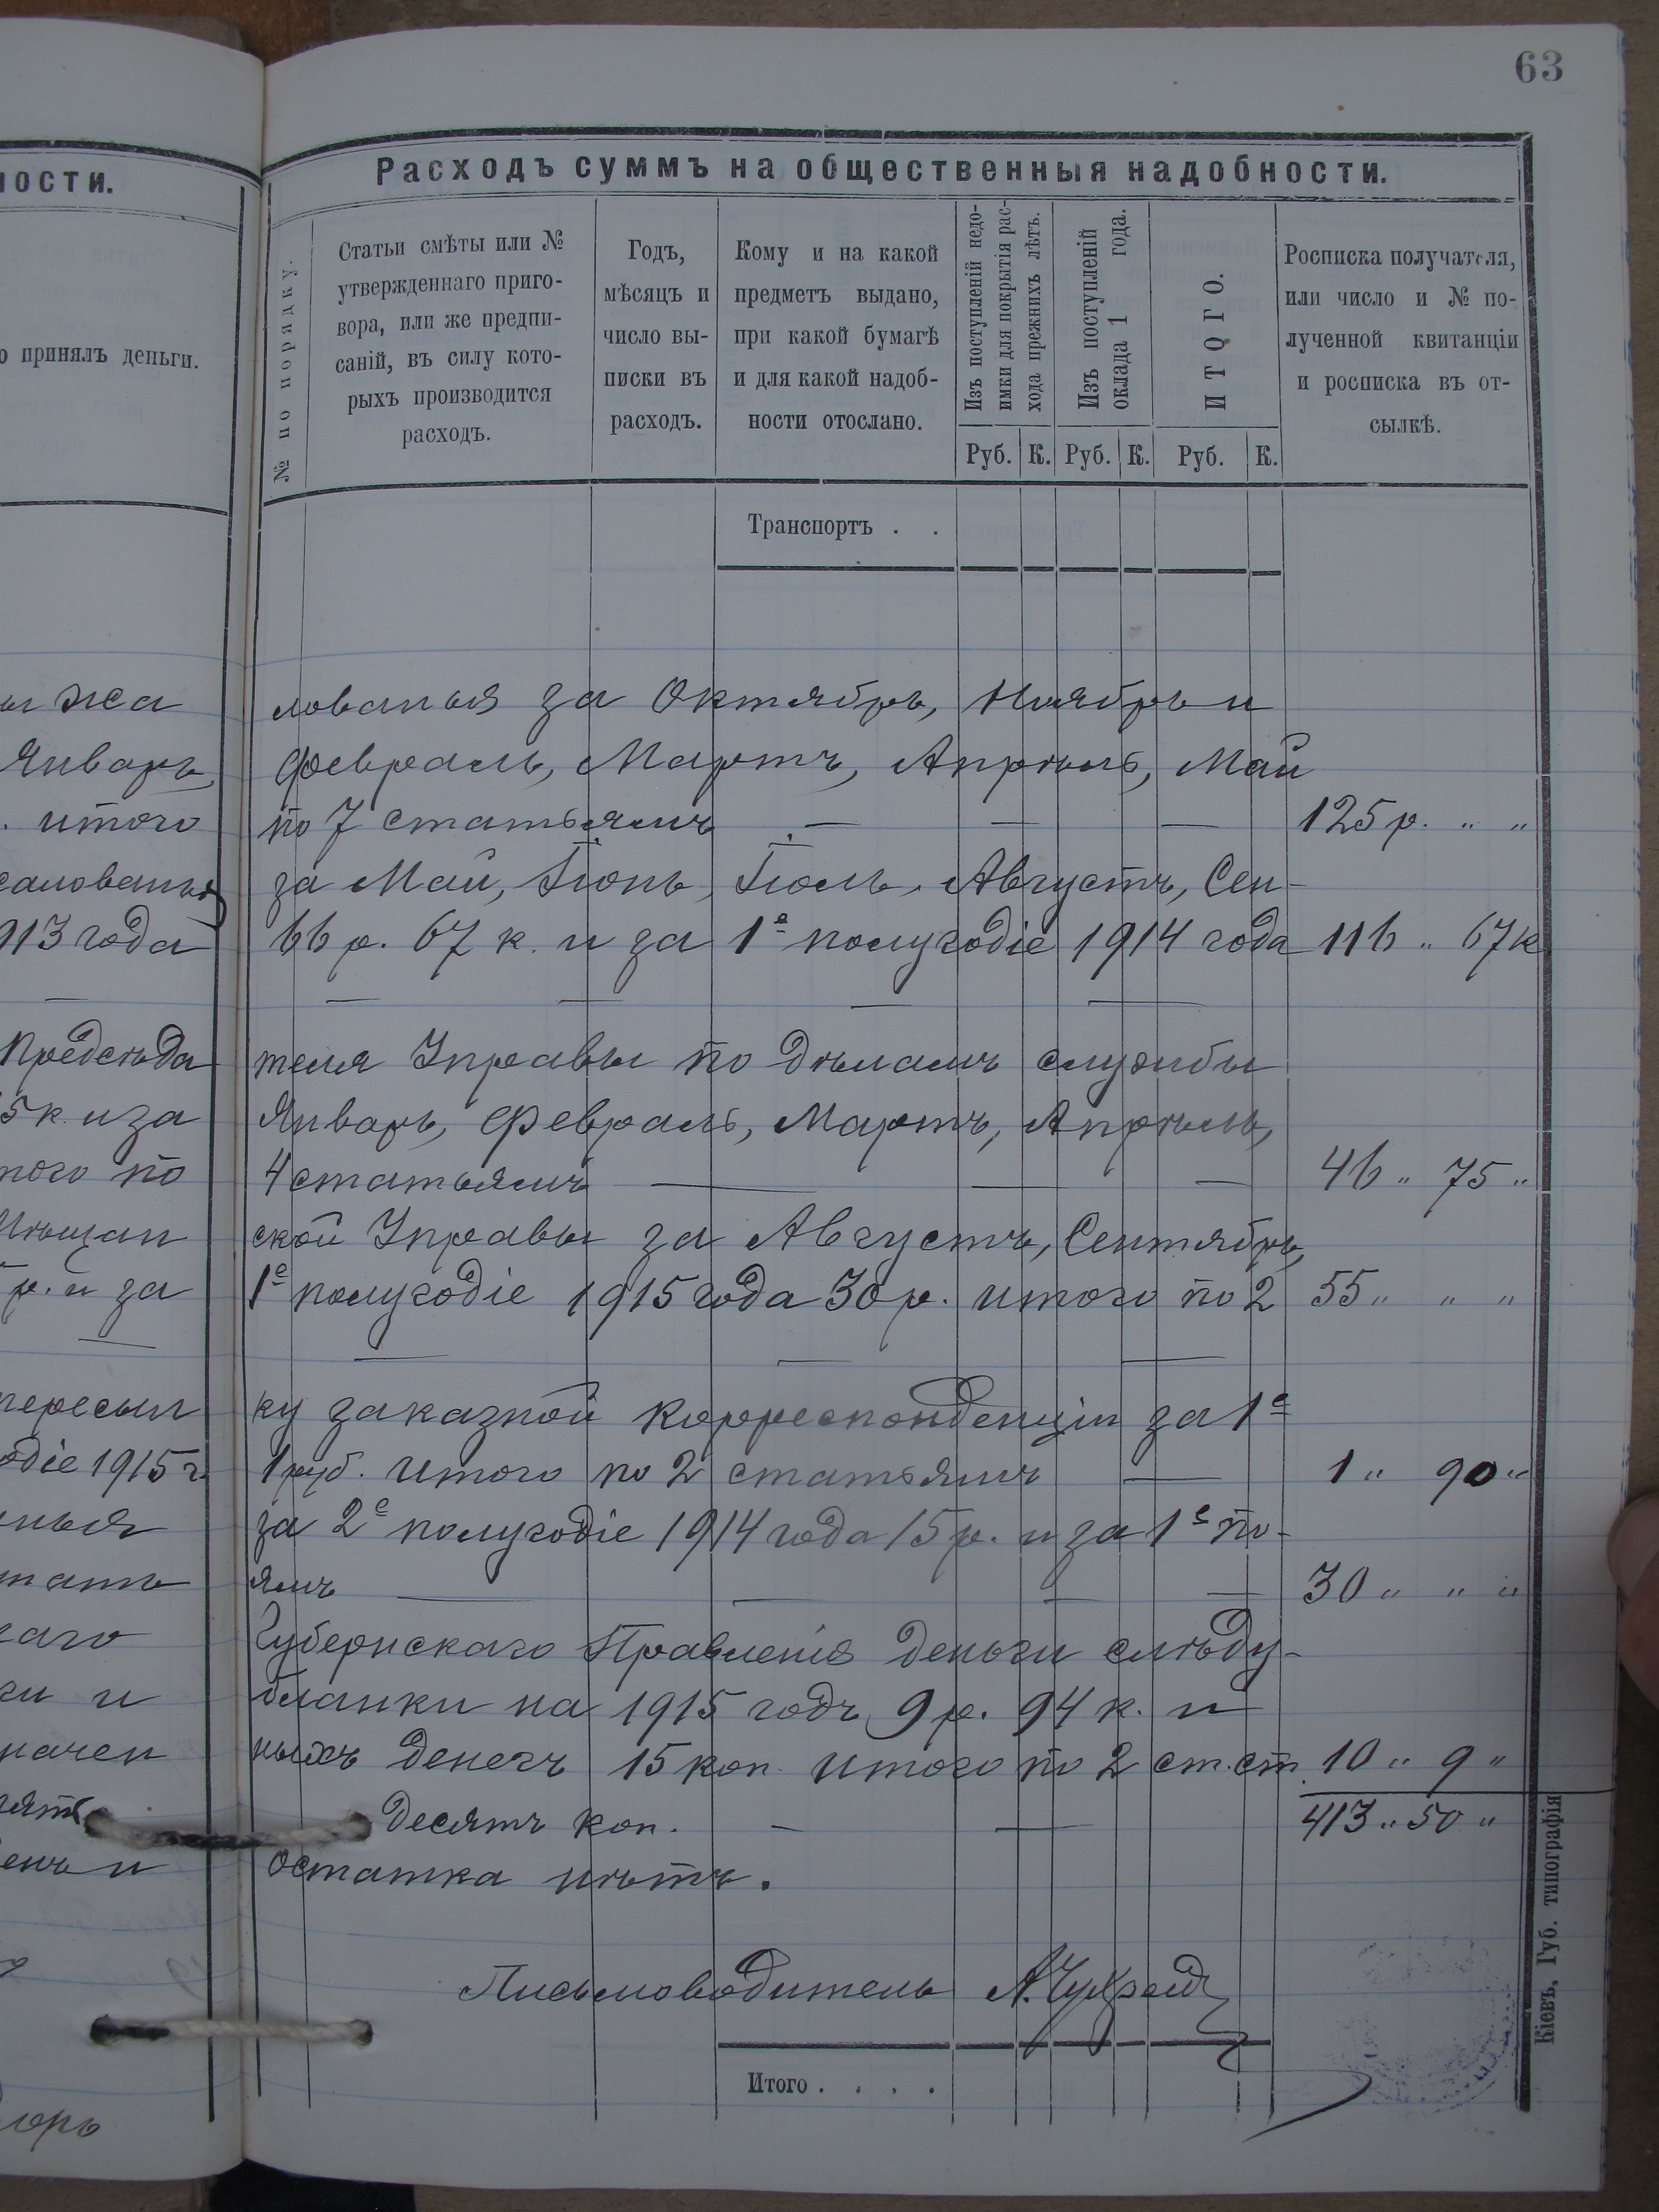 63
ности.
Расходъ суммъ на общественныя надобности.
о принялъ деньги.
№ по порядку.
Статьи смѣты или №
утвержденнаго приго-
вора, или же предпи-
саній, въ силу кото-
рыхъ производится
расходъ.
Годъ,
мѣсяцъ и
число вы-
писки въ
расходъ.
Кому и на какой
предметъ выдано,
при какой бумагѣ
и для какой надоб-
ности отослано.
Изъ поступленій недо-
имки для покрытія рас-
хода прежнихъ лѣтъ.
Изъ поступленій
оклада 1 года.
ИТОГО.
Росписка получателя,
или число и № по-
лученной квитанціи
и росписка въ от-
сылкѣ.
Руб. К. Руб. К. Руб. К.
Транспортъ . .
жа лованья за Октябрь, Ноябрь и
Январь, Февраль, Мартъ, Апрѣль, Май
. итого по 7 статьямъ — — — 125 р. " "
жалованья за Май, Іюнь, Іюль, Августъ, Сен-
913 года 66 р. 67 к. и за 1е полугодіе 1914 года 116 " 67 к
— — — — —
Предсѣда теля Управы по дѣламъ службы
5 к. и за Январь, Февраль, Мартъ, Апрѣль,
того по 4 статьямъ — — — 46 " 75 "
Мѣщан ской Управы за Августъ, Сентябрь,
р. и за 1е полугодіе 1915 года 30 р. итого по 2 55 " " "
— — — —
пересыл ку заказной корреспонденціи за 1е
одіе 1915 г. 1 руб. Итого по 2 статьямъ — 1 " 90 "
нья за 2е полугодіе 1914 года 15 р. и за 1е по-
тать ямъ — — — — 30 " " "
каго Губернскаго Правленія деньги слѣду-
ги и бланки на 1915 годъ 9 р. 94 к. и
начен ныхъ денегъ 15 коп. Итого по 2 ст.ст. 10 " 9 "
десятъ коп. — — 413 " 50 "
енъ и остатка нѣтъ.
Письмоводитель А.
Итого . . . .
Кіевъ, Губ. типографія